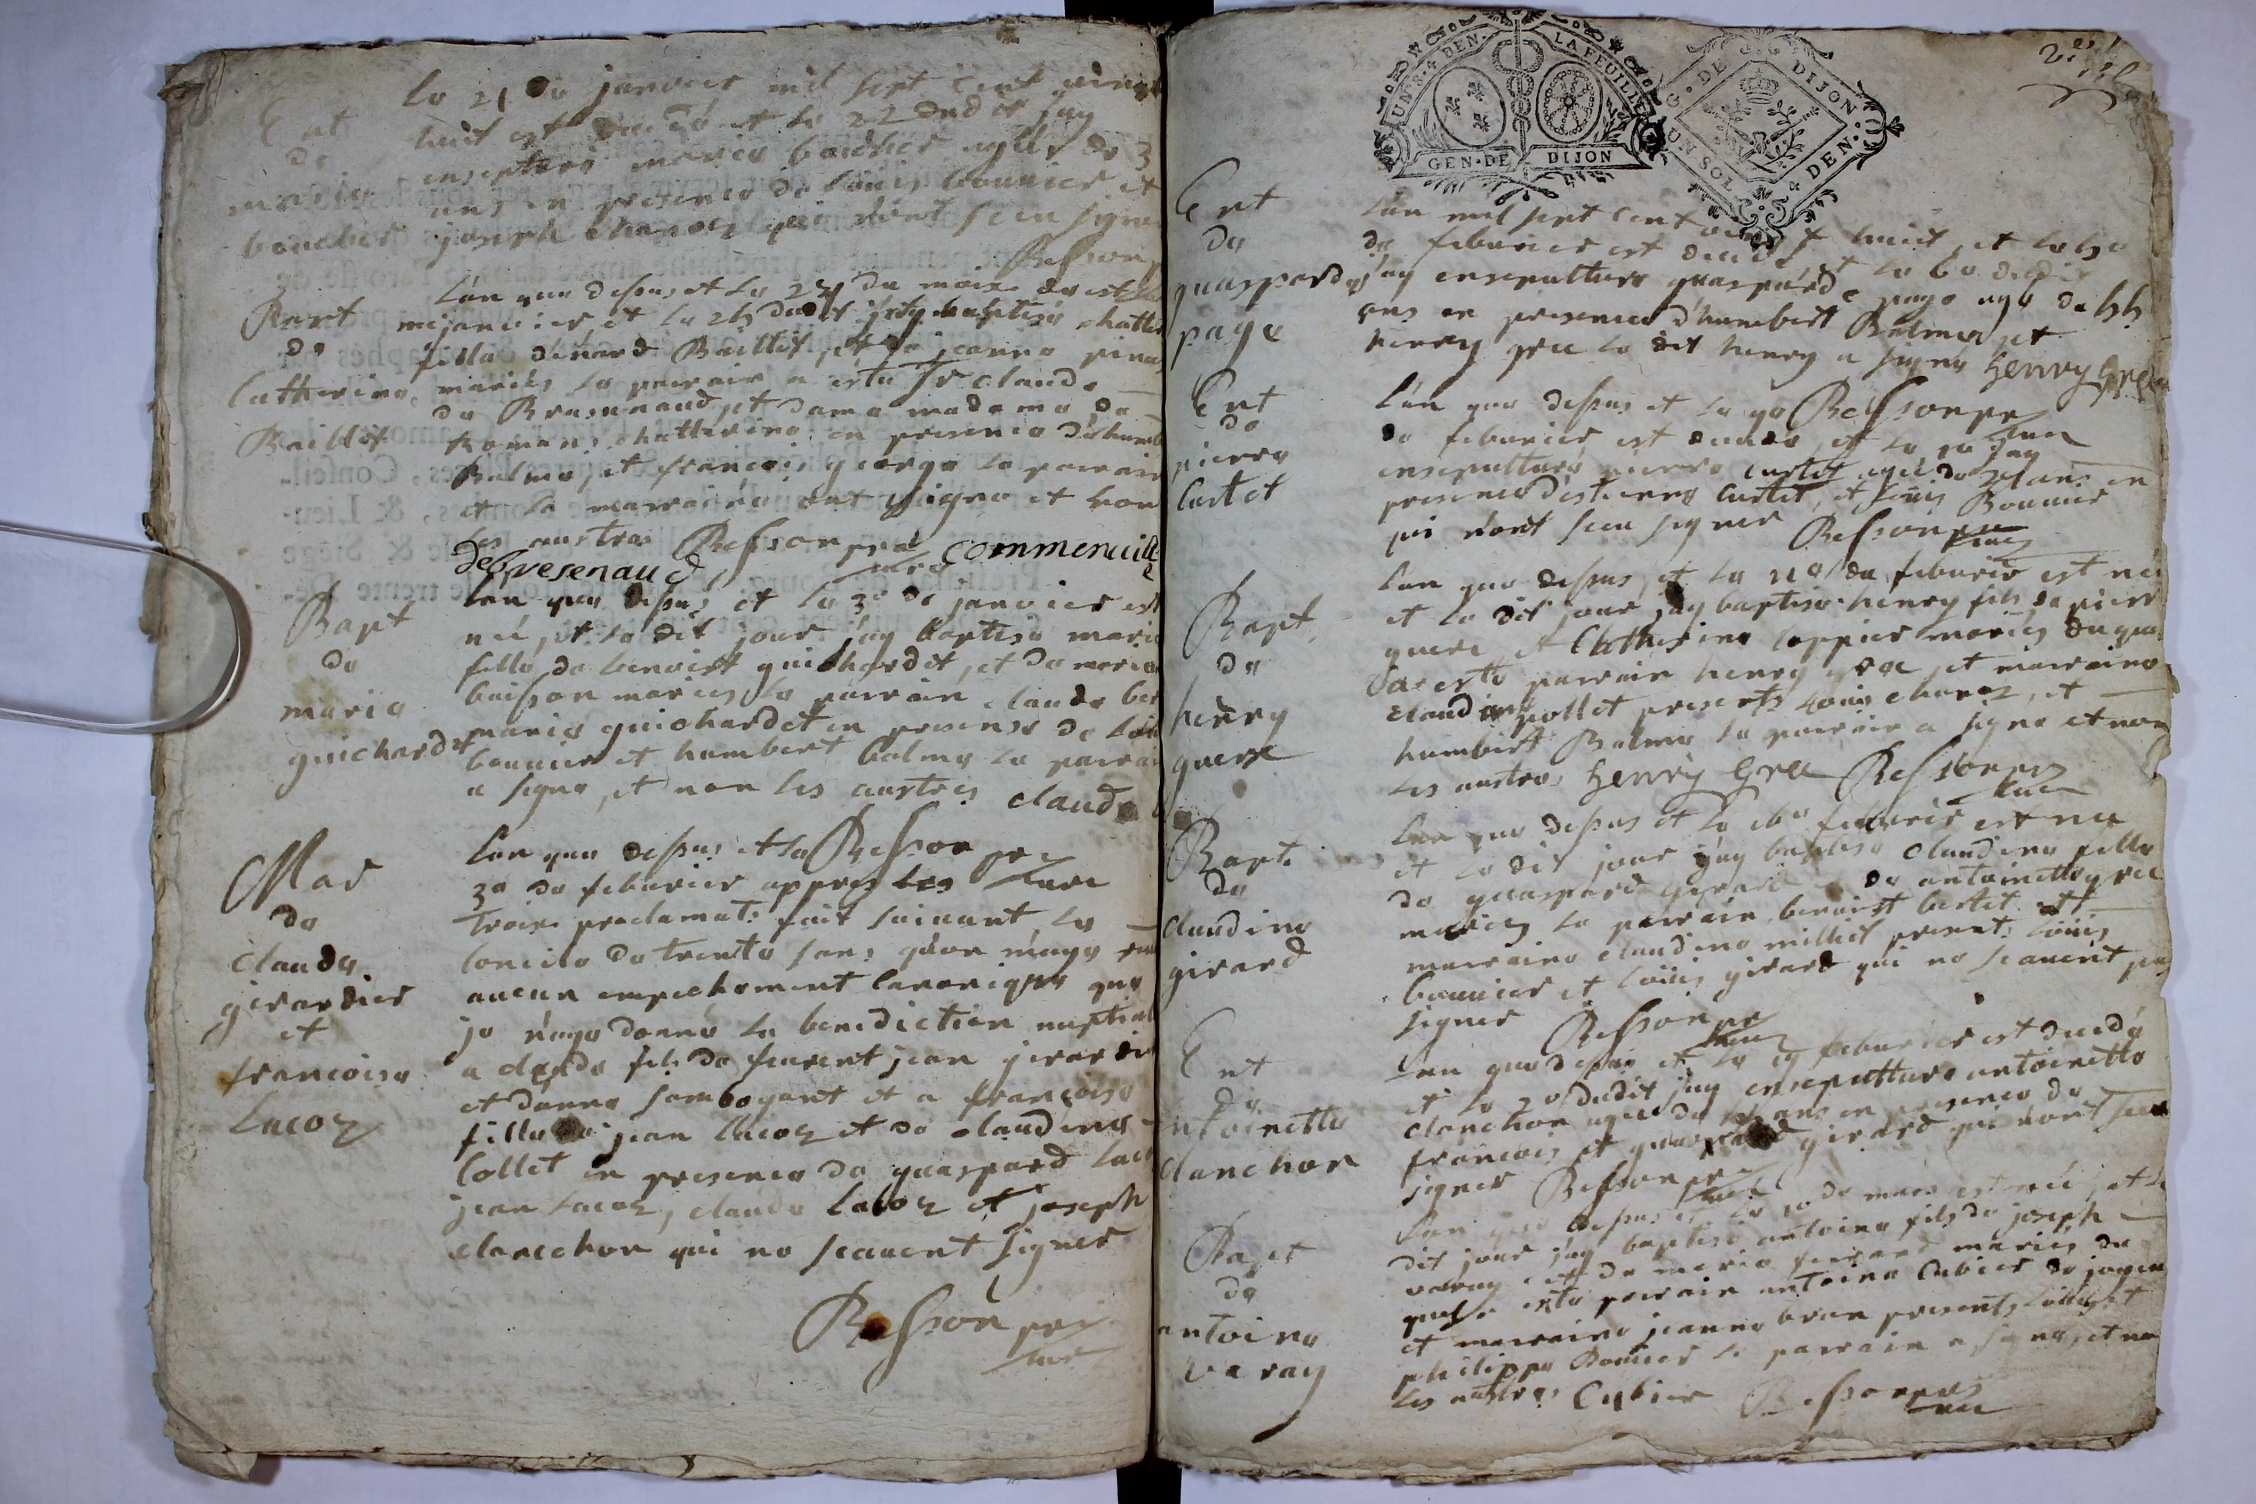 Ent
de
marie
boucher
le 21 de janvier mil sept cent vingt
huit est decedé et le 22 dudit jay
ensepturé marie boucher agée de 3
ans en presence de louis bonnier et
joseph chanoz qui n'ont sceu signer
Besson
Bapt
de
Catherine
Baillet
l'an que dessus et le 24 du mois de
janvier et le 25 dudit jay baptisé
fille d'enard Baillet et de jeanne
mariés le parrain a esté Sr claude
de Bresenaud et dame madame de
Romans chatterine en presence d'humb
Balme et francois george le parrain
et la marraine ont signé et non
les austres Besson pre commenville
debresenaud curé
Bapt
de
marie
guichardet
l'an que dessus et le 30 de janvier est
neé et le dit jour jay baptisé marie
fille de benoist guichardet et de marie
buisson mariés le parrain claude
marie guichardet en presense de
bonnier et humbert balme le parrain
a signé et non les austres claude
Besson pre
curé
Mar
de
claude
girardier
et
francoise
Lacoz
l'an que dessus et le
3e de febvrier appres les
trois proclamat: fait suivant le
concile de trente sans qu'on m'aye
aucun empechement canonique que
je n'aye donné la benediction nuptial
a claude fils de feurent jean girardie
et d'anne sambogant et a françoise
fille de jean lacoz et de claudine
Collet en presence de guaspard
jean lacoz, claude lacoz et joseph
clanchon qui ne scavent signer
Besson pre
curé
UN·S·4·DEN· LA FEUILLE
GEN·DE DIJON
G·DE DIJON
UN SOL 4 DEN·
Ent
de
guasparde
page
l'an mil sept cent vingt huit et le
de febvrier est decedé et le 6e dudit
jay ensepulturé guasparde page agé de 55
ans en presence d'humbert Balme et
henry gree le dit henry a signé henry gree
Besson pre
curé
Ent
de
pierre
Curtet
l'an que dessus et le 9e
de febvrier est decedé et le 10 jay
ensepulturé pierre curtet agé de ans en
presence d'estienne Curtet, et louis Bonnier
qui n'ont sceu signer Besson pre
curé
Bapt
de
henry
guere
l'an que dessus, et le 11e de febvrie est né
et le dit jour jay baptisé henry fils de pierr
guere et Catherine loppier mariés duquel
a esté parrain henry gree et marraine
claudine pollet presents louis chanoz, et
humbert Balme le parrain a signé et non
les austres henry Gree Besson pre
curé
Bapt
de
claudine
girard
l'an que dessus et le 16e febvrie est née
et le dit jour jay baptisé claudine fille
de guaspard girard et de antoinette gree
mariés le parrain benoist bertet et
marraine claudine millet present: louis
bonnier et louis girard qui ne scavent pas
signer Besson pre
curé
Ent
de
antoinette
clanchon
l'an que dessus et le 19 febvrier est decedé
et le 20 dudit jay ensepulturé antoinette
clanchon agée de ans en presence de
francois et guaspard girard qui n'ont sceu
signer Besson pre
curé
Bapt
de
antoine
varay
l'an que dessus et le 10 de mars est né, et le
dit jour jay baptisé antoine fils de joseph
varay et de marie ferrand mariés du
quel a esté parrain antoine Cubier de
et marraine jeanne brun presents
philippe Bonnier le parrain a signé et non
les austres Cubier Besson pre
curé